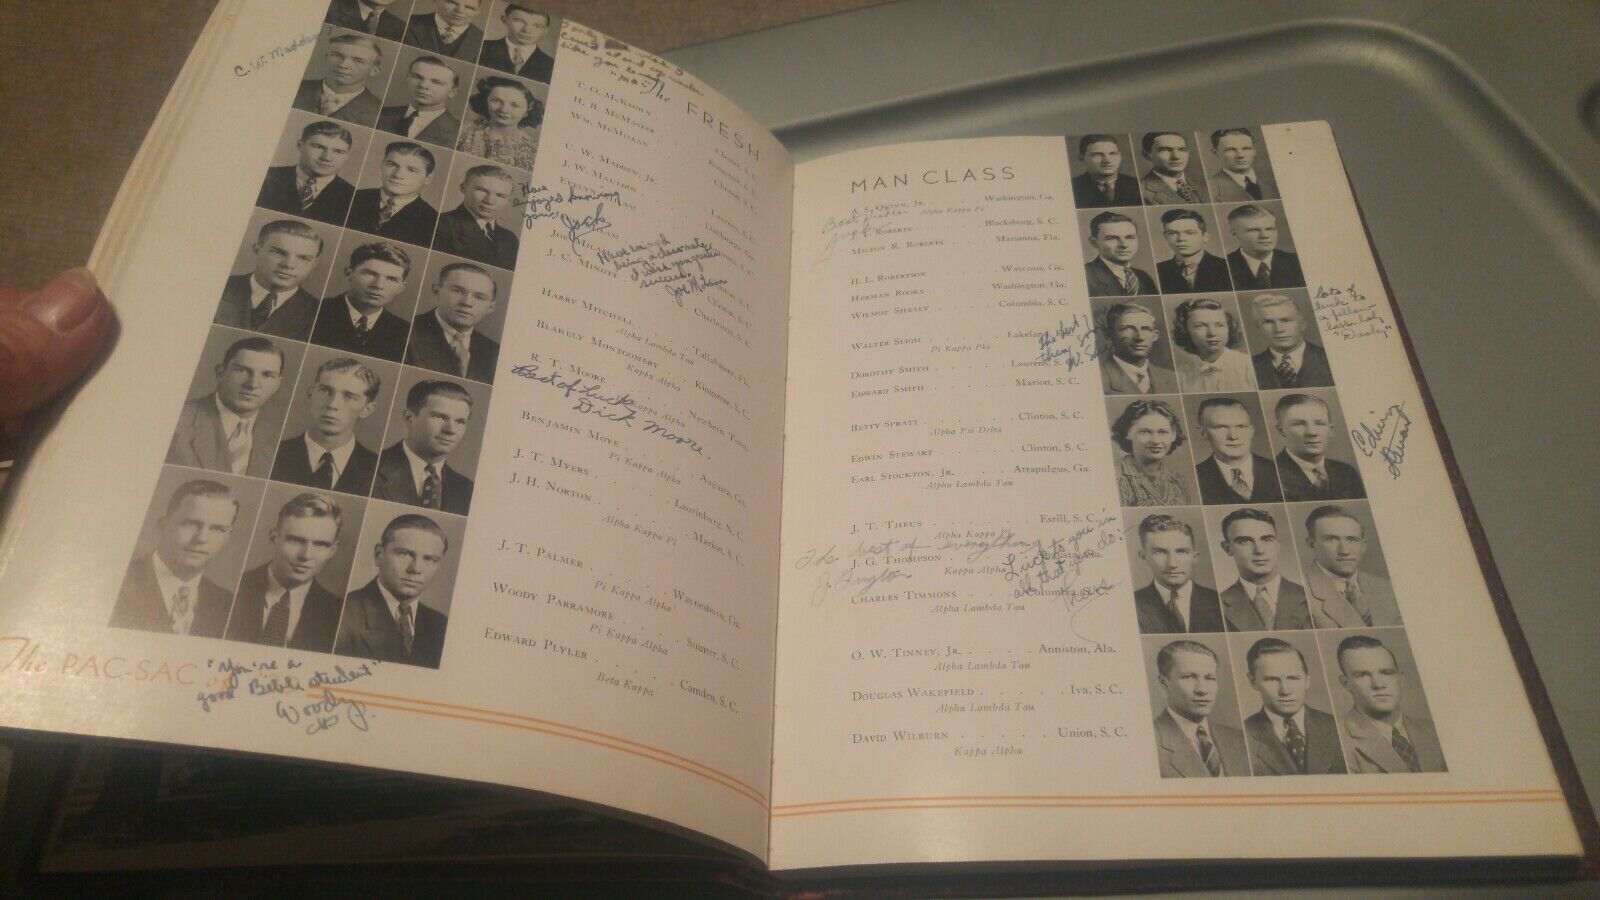 C. W. Madden
could stand up under
like you
"Ma"
The FRESH
T. O. McKeown
H. B. McMaster
Wm. McMillan
Clinton, S. C.
Kingstree, S. C.
Clinton, S. C.
C. W. Madden, Jr.
J. W. Mauldin
Evelyn
Laurens, S. C.
Have
enjoyed knowing
you!
Jack
Joe Milam
J. C. Minott
Clinton, S. C.
Charleston, S. C.
Have enjoyed
being a classmate
I wish you quite
success.
Joe Milam
Harry Mitchell
Tallahassee, Fla.
Alpha Lambda Tau
Blakely Montgomery
Kingstree, S. C.
Kappa Alpha
R. T. Moore
Newbern, Tenn.
Kappa Alpha
Best of Luck
Dick Moore.
Benjamin Moye
Augusta, Ga.
Pi Kappa Alpha
J. T. Myers
Laurinburg, N. C.
J. H. Norton
Marion, S. C.
Alpha Kappa Pi
J. T. Palmer
Waynesboro, Ga.
Pi Kappa Alpha
Woody Parramore
Sumter, S. C.
Pi Kappa Alpha
Edward Plyler
Camden, S. C.
Beta Kappa
The PAC-SAC
"You're a
good Bible student"
Woody
P.
MAN CLASS
A. S. Quinn, Jr. Washington, Ga.
Alpha Kappa Pi
Best wishes
J. T. Roberts Blacksburg, S. C.
Milton R. Roberts Marianna, Fla.
H. L. Robertson Waycross, Ga.
Herman Rooks Washington, Ga.
Wilmot Shealy Columbia, S. C.
Walter Sligh Lakeland, Fla.
Pi Kappa Phi
Dorothy Smith Laurens, S. C.
Edward Smith Marion, S. C.
The best
W.
Lots of
luck to
a fellow
class
Betty Spratt Clinton, S. C.
Alpha Psi Delta
Edwin Stewart Clinton, S. C.
Earl Stockton, Jr. Attapulgus, Ga.
Alpha Lambda Tau
Edwin
Stewart
J. T. Theus Estill, S. C.
Alpha Kappa Pi
The best of everything
J. G. Thompson Augusta, Ga.
Kappa Alpha
Charles Timmons Columbia, S. C.
Alpha Lambda Tau
Luck to you in
all that you do.
Theus
O. W. Tinney, Jr. Anniston, Ala.
Alpha Lambda Tau
Douglas Wakefield Iva, S. C.
Alpha Lambda Tau
David Wilburn Union, S. C.
Kappa Alpha